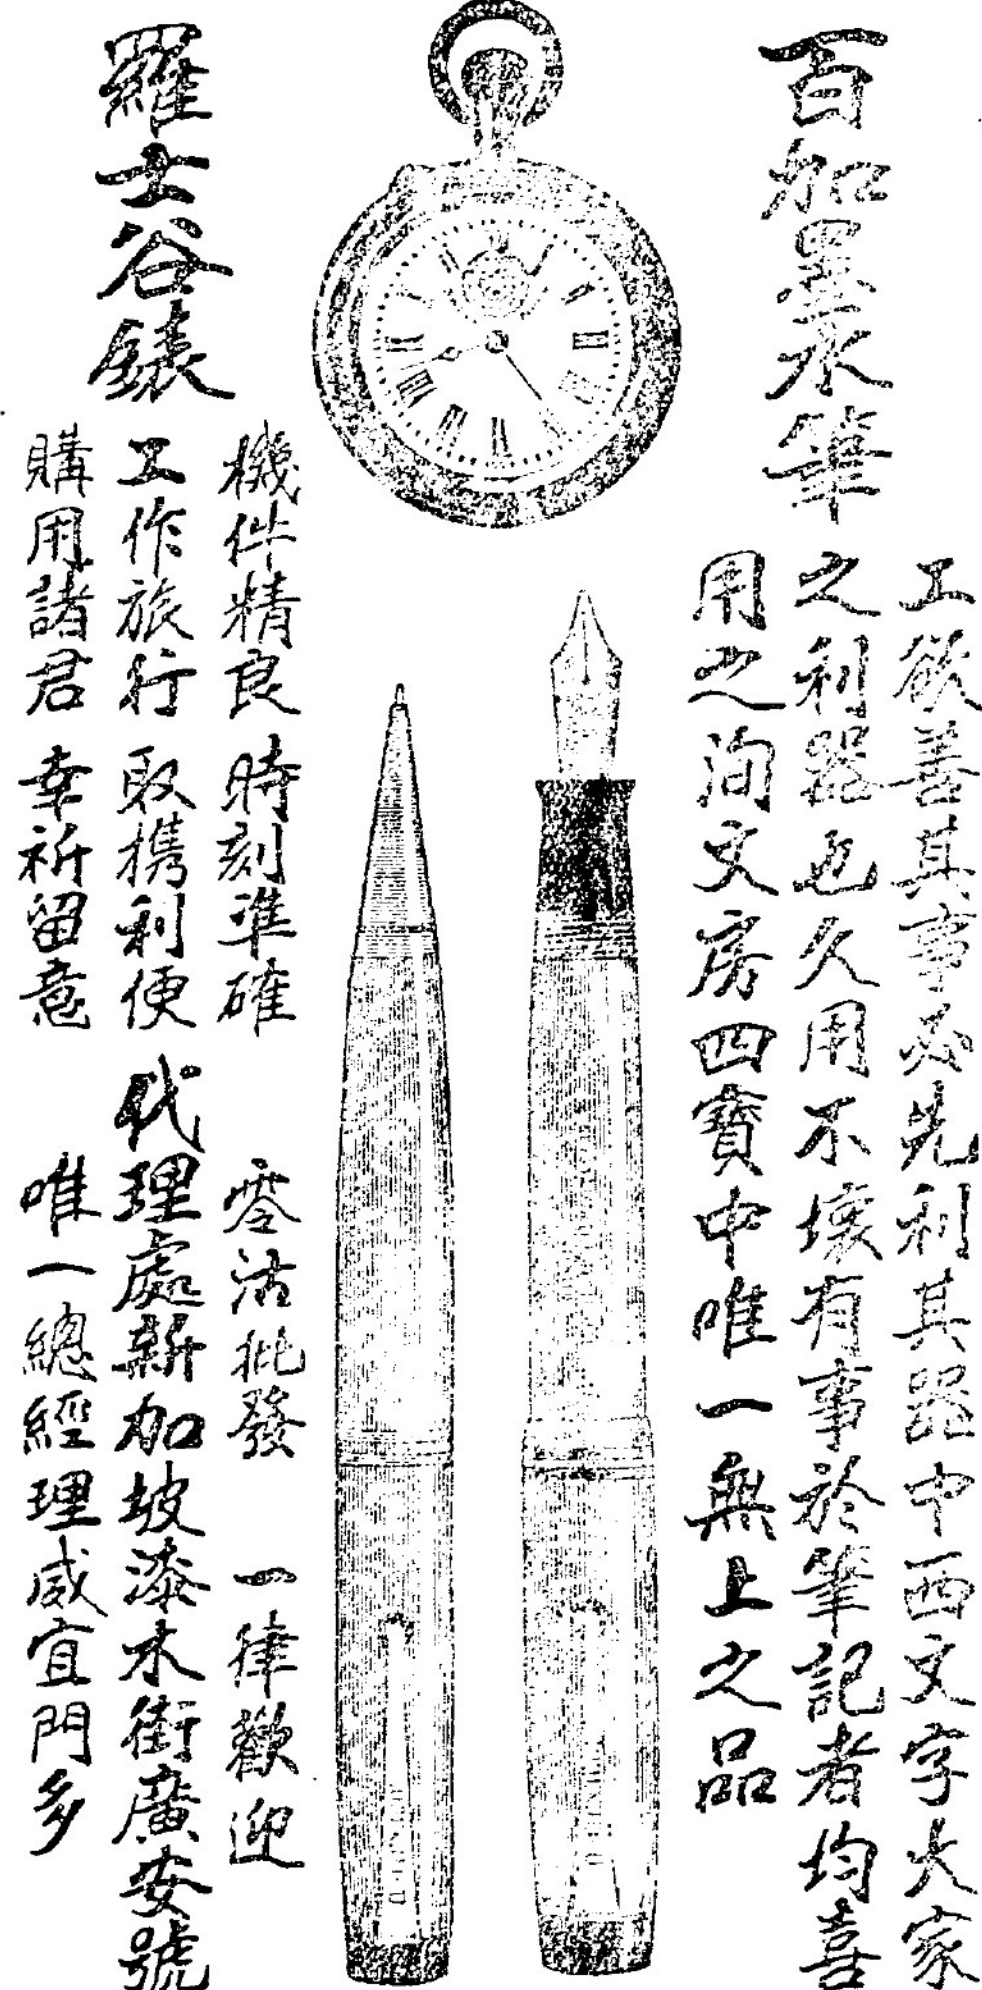 百加墨水筆
工欲善其事必先利其器中西文字大家
之利器也久用不壞有事於筆記者均喜
用之洵文房四寶中唯一無上之品
羅士谷錶
機件精良 時刻準確 零沽批發 一律歡迎
工作旅行 取携利便
購用諸君 幸祈留意
代理處新加坡漆木街廣安號
唯一總經理威宜門多